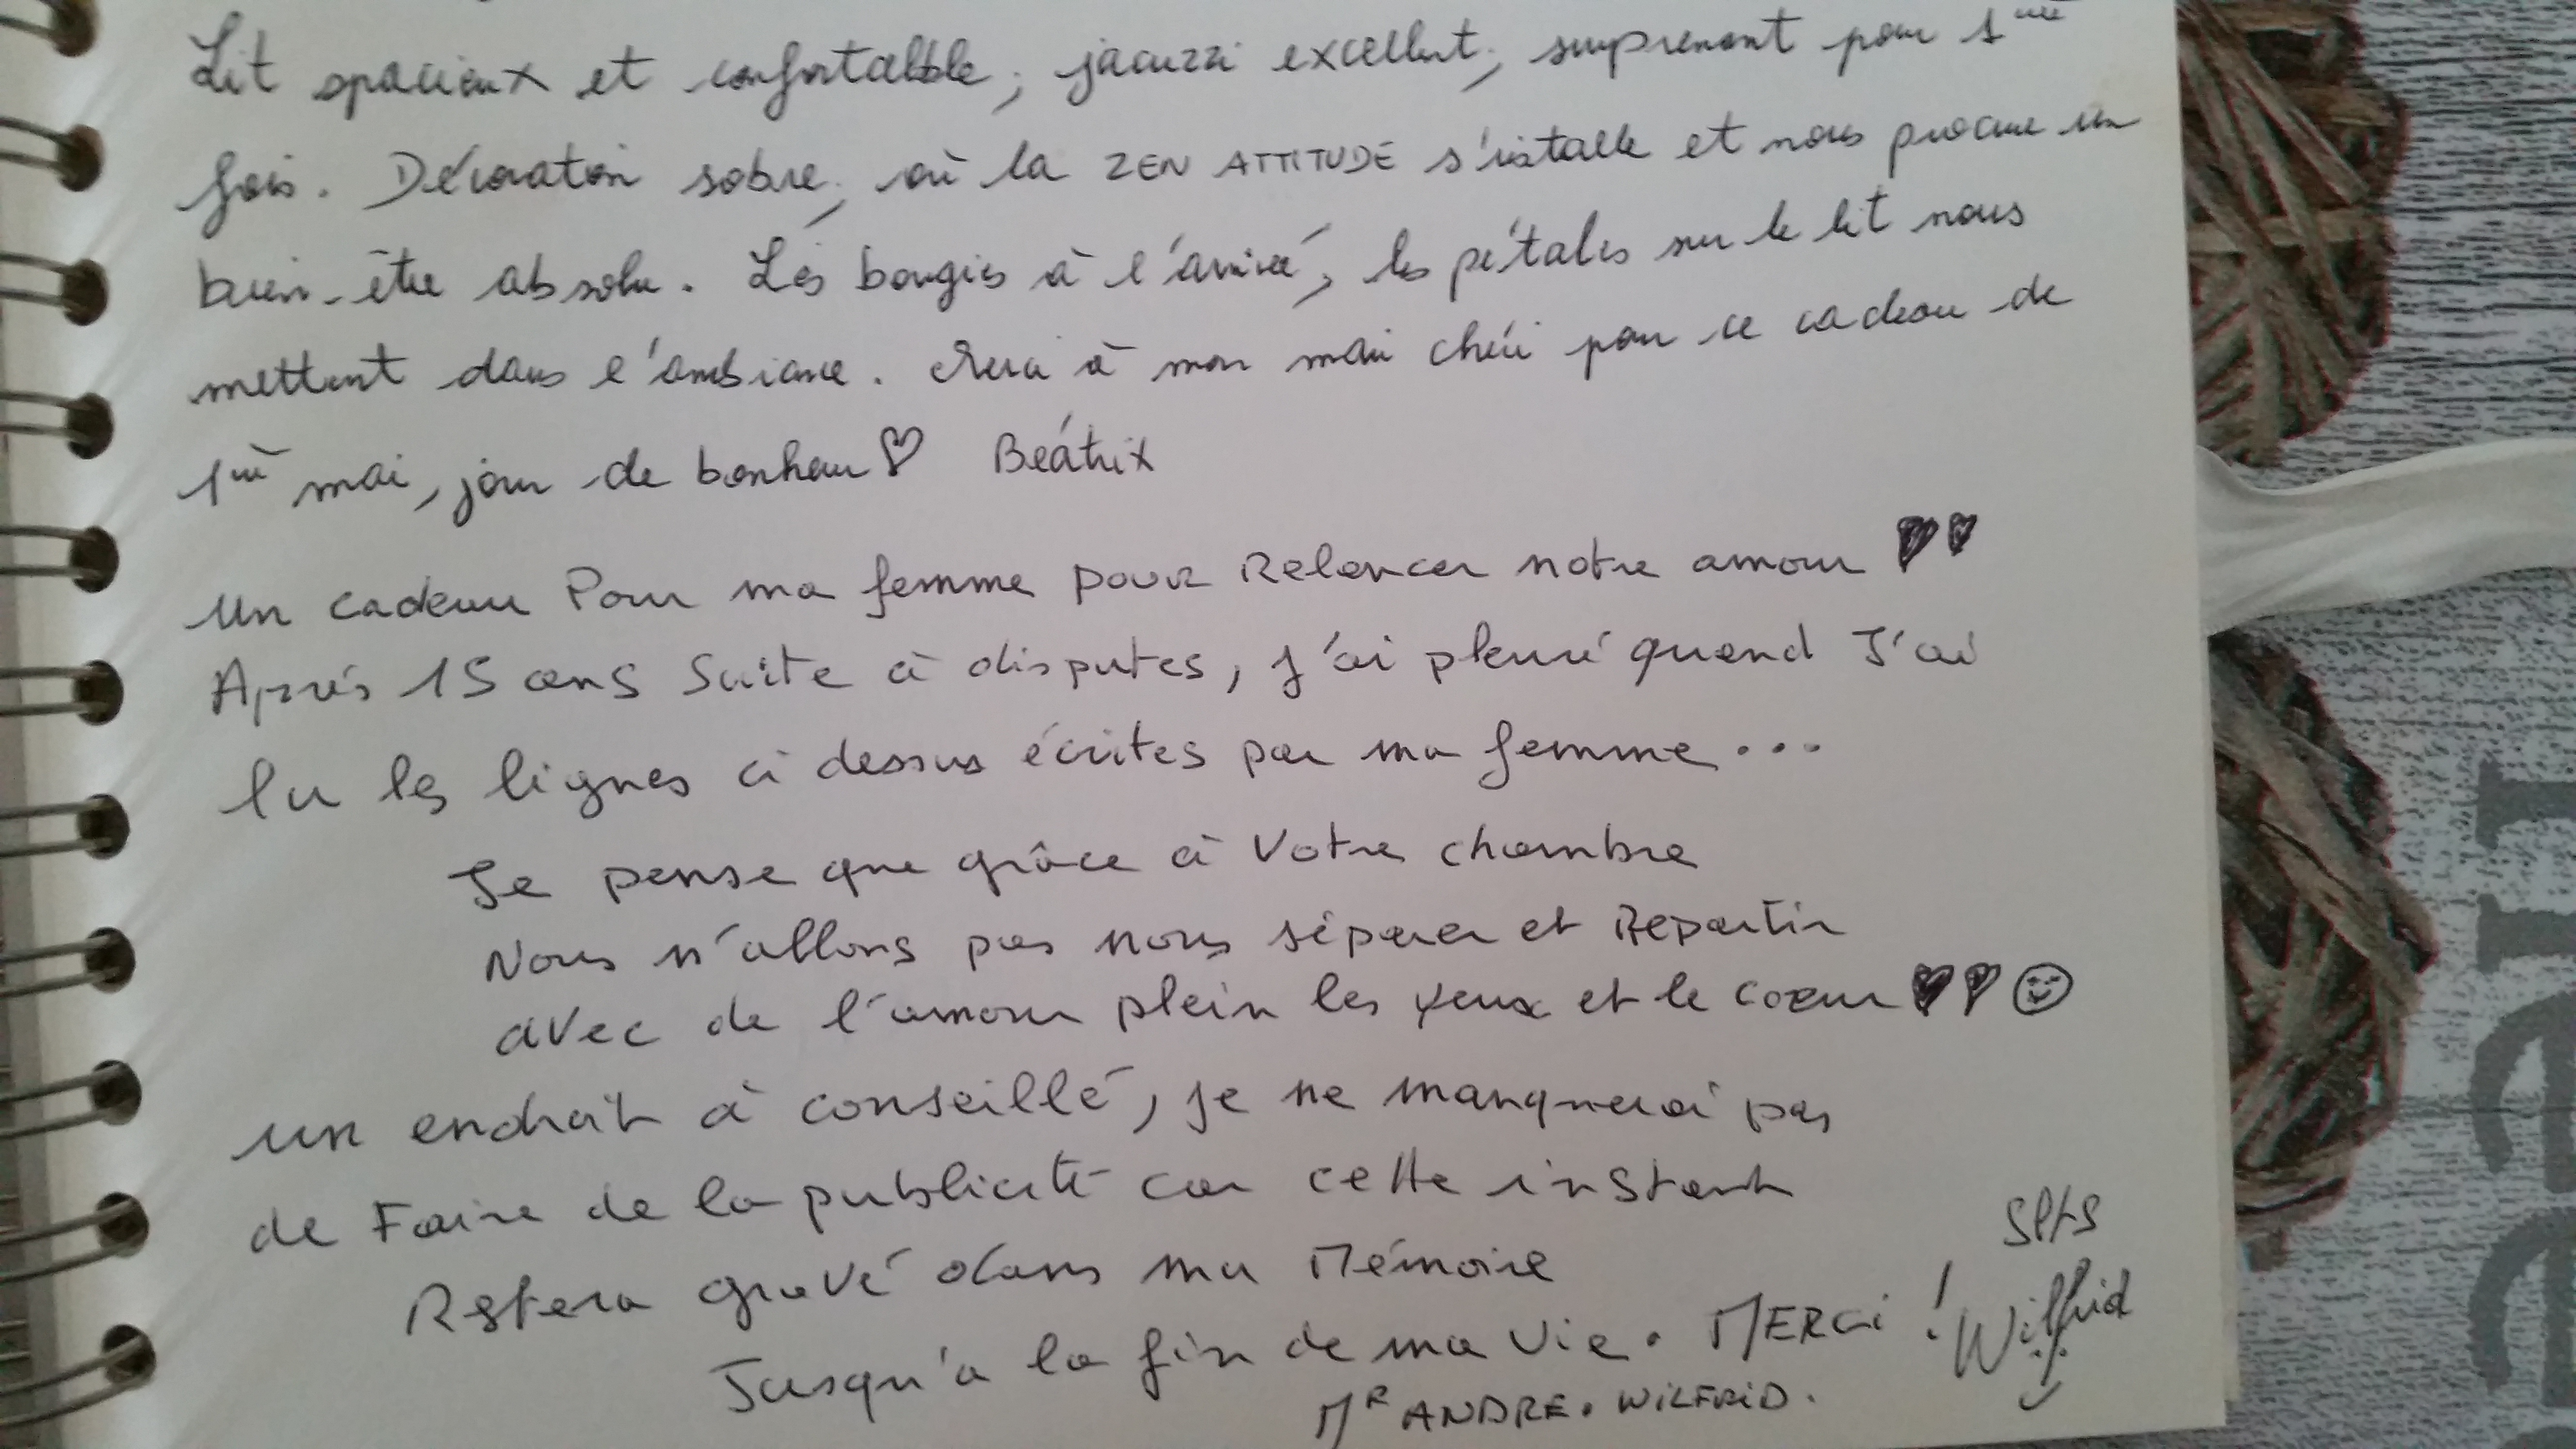 Lit spacieux et confortable, jacuzzi excellent, surprenant pour 1ère
fois. Décoration sobre, où la ZEN ATTITUDE s'installe et nous procure un
bien-être absolu. Les bougies à l'arrivée, les pétales sur le lit nous
mettent dans l'ambiance. Merci à mon mari chéri pour ce cadeau de
1er mai, jour de bonheur ♡ Béatrix
Un cadeau Pour ma femme pour Relancer notre amour ♥♥
Après 15 ans suite à disputes, j'ai pleuré quand J'ai
lu les lignes ci dessus écrites par ma femme...
Je pense que grâce à Votre chambre
Nous n'allons pas nous séparer et Repartir
avec de l'amour plein les yeux et le coeur ♥♥☺
un endroit à conseillé, je ne manquerai pas
de Faire de la publicité car cette instant
Restera gravé dans ma Mémoire
Jusqu'a la fin de ma Vie. MERCi !
Wilfrid
MR ANDRE. WiLFRiD.